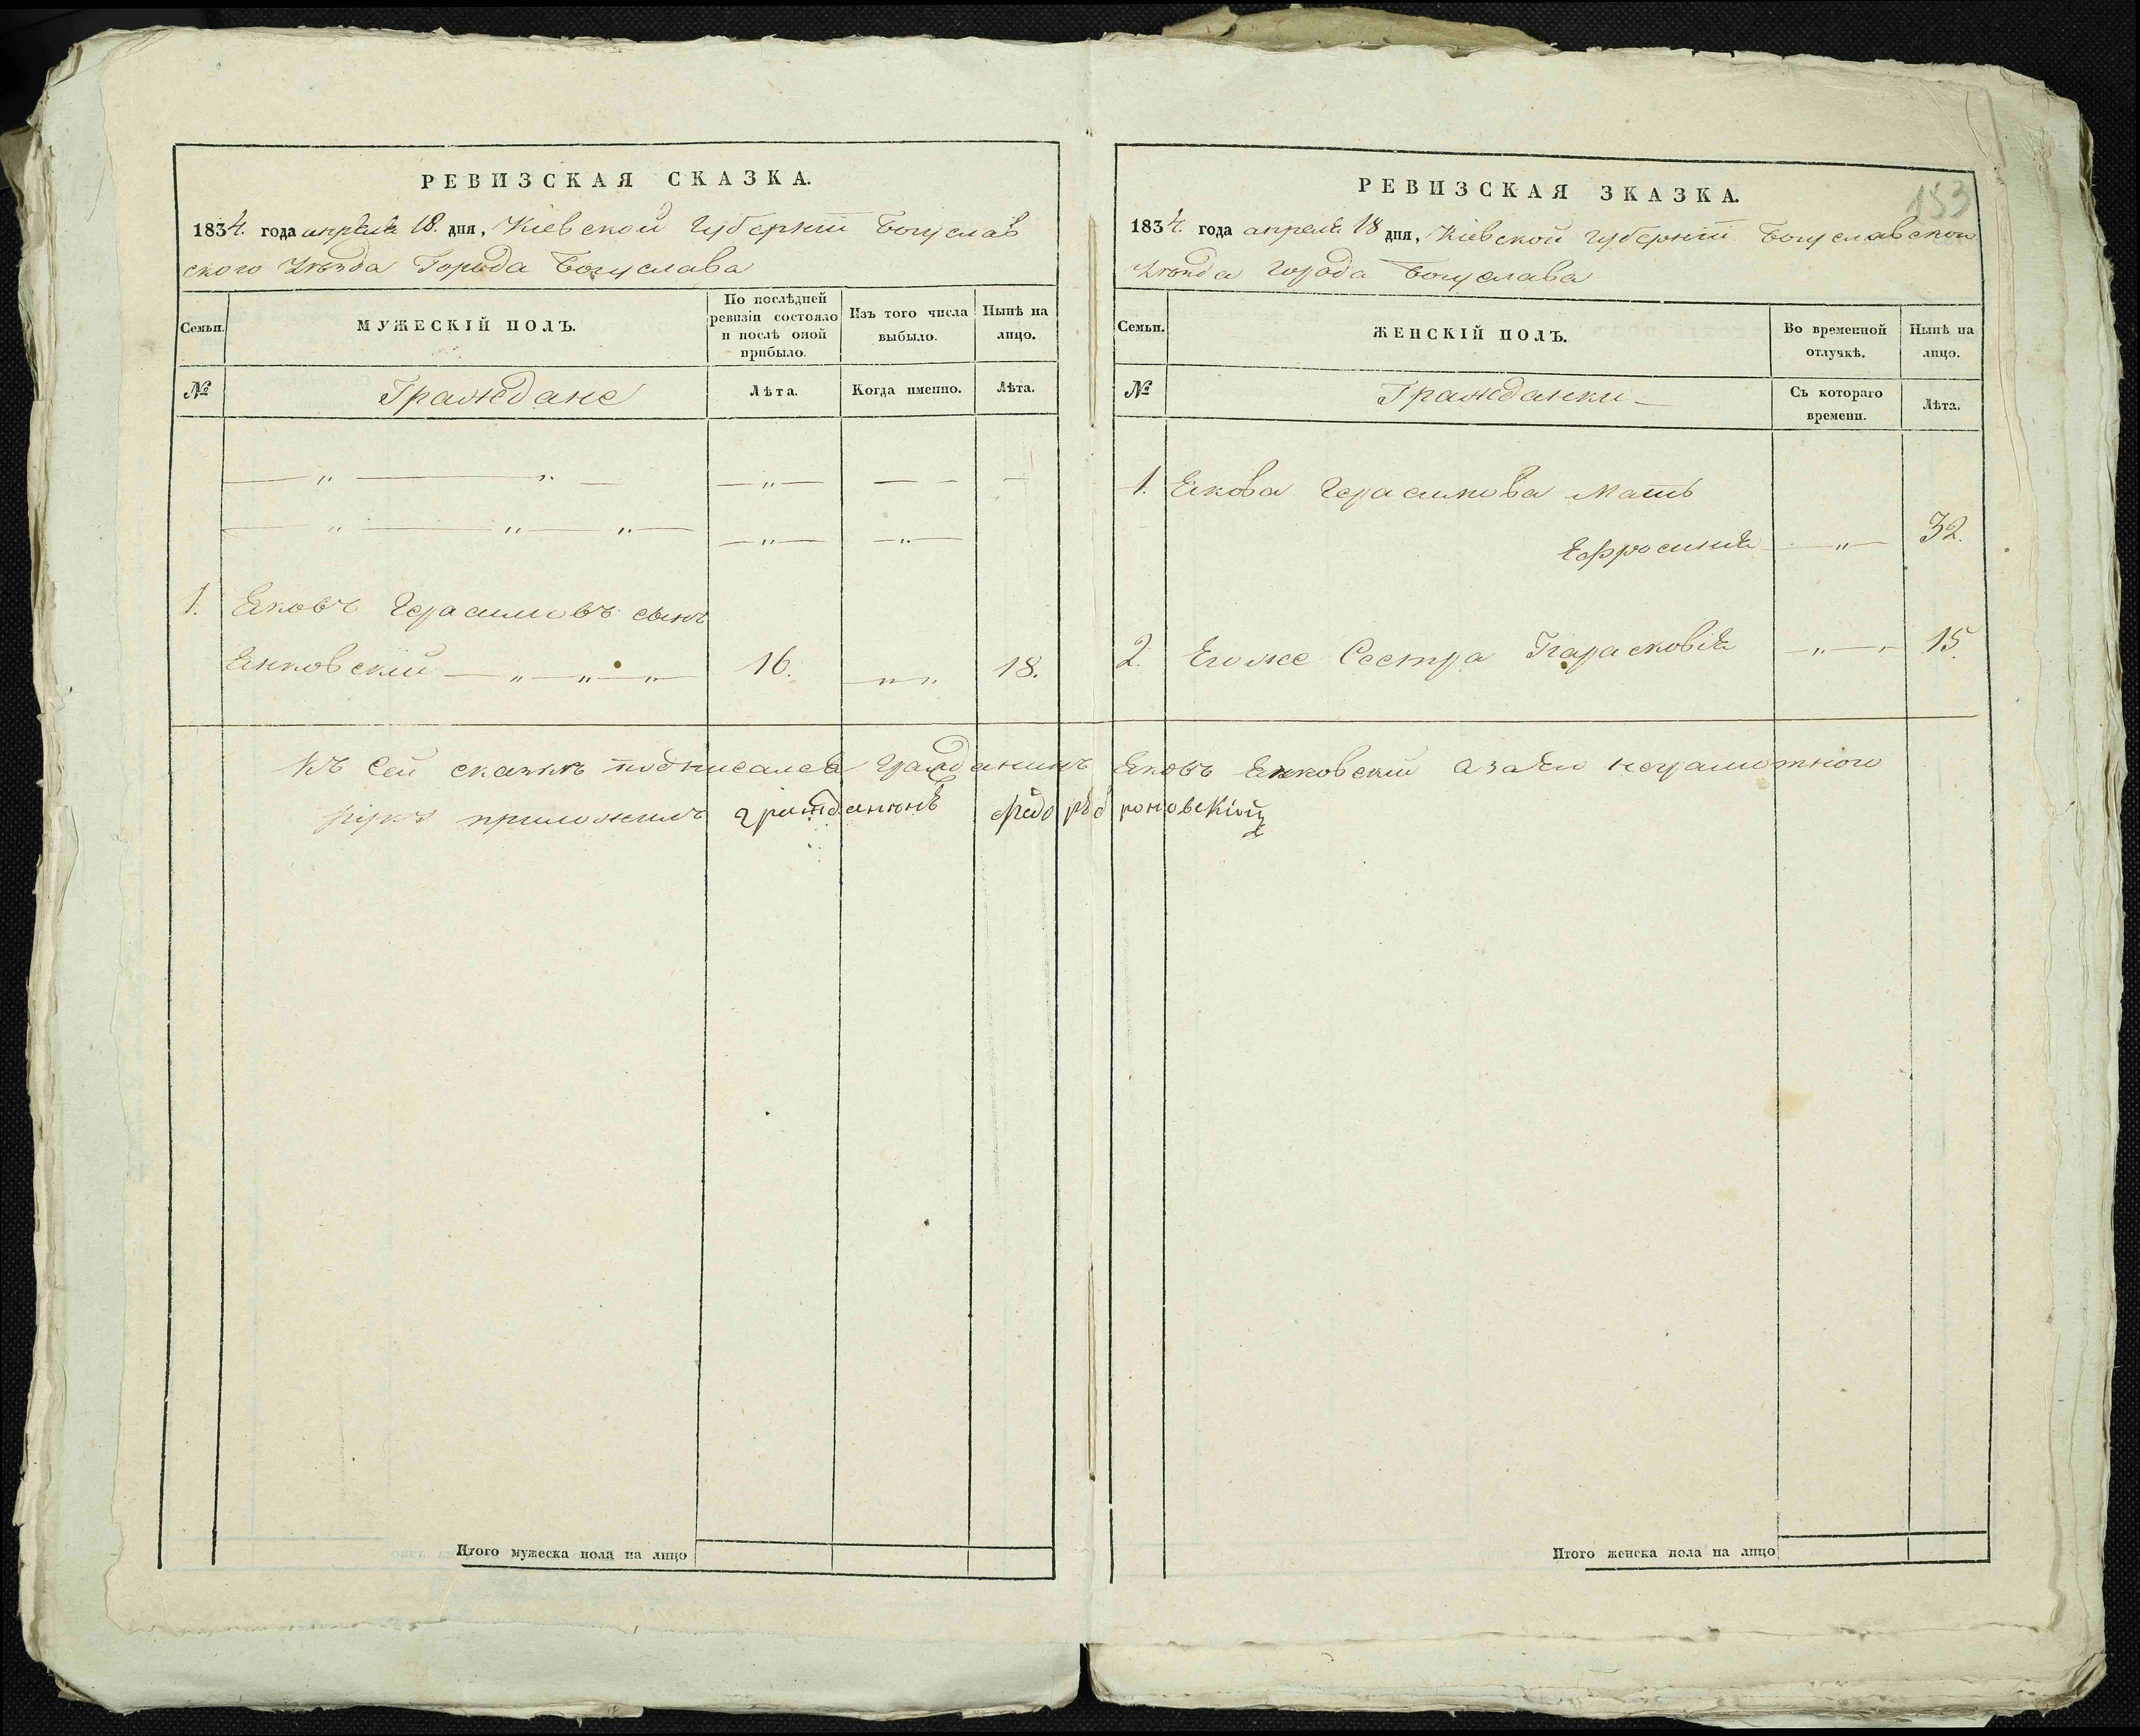 РЕВИЗСКАЯ СКАЗКА.
1834. года апреля 18. дня, Киевской Губернии Богуслав
ского Уезда Города Богуслава
Семьи.
МУЖЕСКІЙ ПОЛЪ.
По послѣдней ревизіи состояло и послѣ оной прибыло.
Изъ того числа выбыло.
Нынѣ на лицо.
№
Граждане
Лѣта.
Когда именно.
Лѣта.
1. Яковъ Герасимовъ сынъ
Янковскій 16. 18.
Къ сей сказкѣ подписался Гражданинъ Яковъ Янковскій а за его неграмотного
руку приложилъ гражданинъ
Итого мужеска пола на лицо
РЕВИЗСКАЯ ЗКАЗКА.
153
1834. года апреля 18 дня, Киевской Губернии Богуславского
Уезда Города Богуслава
Семьи.
ЖЕНСКІЙ ПОЛЪ.
Во временной отлучкѣ.
Нынѣ на лицо.
№
Гражданки
Съ котораго времени.
Лѣта.
1. Якова Герасимова Мать
Ефросиния 32.
2. Егоже Сестра Парасковія 15.
Итого женска пола на лицо